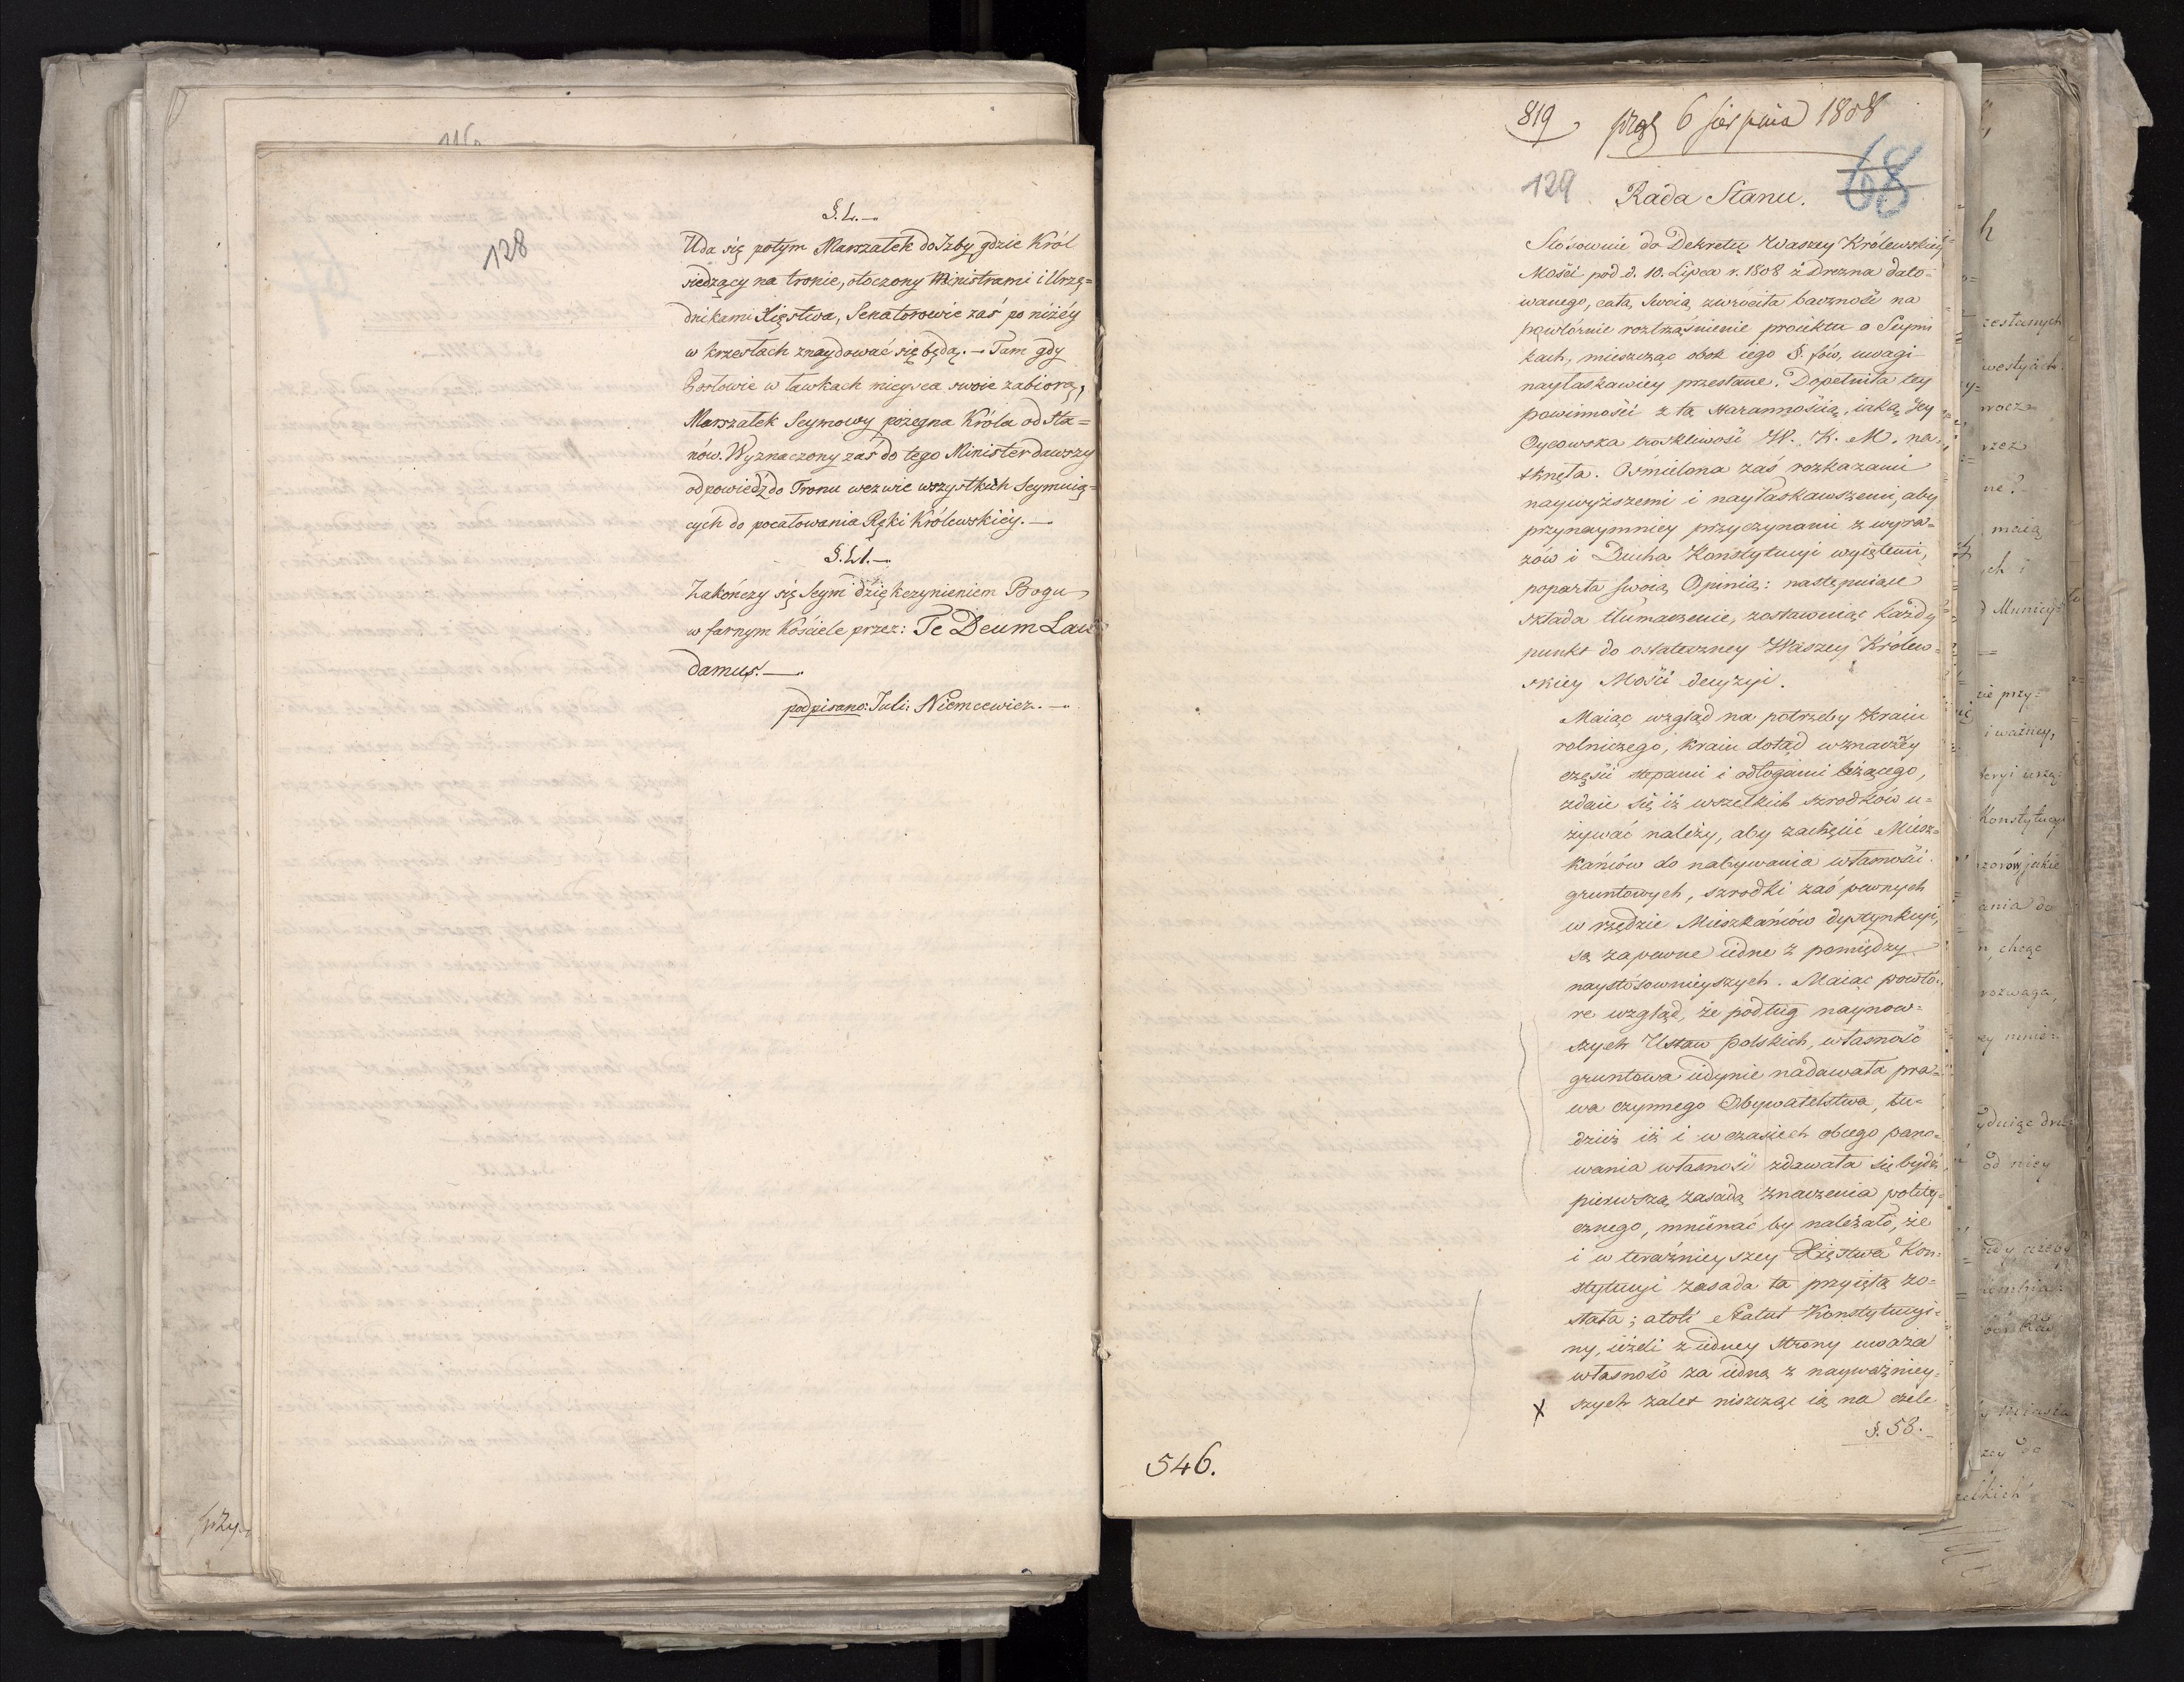 128
§. L. —
Uda się potym Marszałek do Izby gdzie Król
siedzący na tronie, otoczony Ministrami i Urzę=
dnikami Xięstwa, Senatorowie zaś po niżéy
w krzesłach znaydować się będą. — Tam gdy
Posłowie w ławkach mieysca swoie zabiorą,
Marszałek Seymowy pożegna Króla od Sta=
nów. Wyznaczony zaś do tego Minister dawszy
odpowiedź do Tronu wezwie wszystkich Seymuią=
cych do pocałowania Ręki Królewskiéy. —
§. LI. —
Zakończy się Seym dziękczynieniem Bogu
w farnym Kościele przez: Te Deum Lau
damus. —
podpisano: Juli: Niemcewicz. —
819
6 sierpnia 1808
129
68
Rada Stanu.
Stósownie do Dekretu Waszey Królewskiey
Mości pod d. 10. Lipca r. 1808 z Drezna dato=
wanego, całą swoią zwróciła baczność na
powtórnie roztrząśnienie proiektu o Seymi
kach, mieszcząc obok iego §. fów, uwagi
nayłaskawiey przesłane. Dopełniła tey
powinności z tą starannością, iaką Jey
Oycowska troskliwość W. K. M. na=
tknęła. Ośmielona zaś rozkazami
naywyższemi i nayłaskawszemi, aby
przynaymniey przyczynami z wyra=
zów i Ducha Konstytucyi wyiętemi,
poparta swoią Opinią: następuiące
składa tłumaczenie, zostawuiąc każdy
punkt do ostateczney Waszey Królew=
skiey Mości decyzyi.
Maiąc wzgląd na potrzeby kraiu
rolniczego, kraiu dotąd w znaczney
części stepami i odłogami leżącego,
zdaie się iż wszelkich szrodków u=
żywać należy, aby zachęcić Miesz=
kańców do nabywania własności
gruntowych, szrodki zaś pewnych
w rzędzie Mieszkańców dystynkcyi,
są zapewne iedne z pomiędzy
naystósownieyszych. Maiąc powtó=
re wzgląd, że podług naynow=
szych Ustaw polskich, własność
gruntowa iedynie nadawała pra=
wa czynnego Obywatelstwa, tu=
dzież iż i w czasiech obcego pano=
wania własność zdawała się bydź
pierwszą zasadą znaczenia polity=
cznego, mniemać by należało, że
i w teraźnieyszey Xięstwa Kon=
stytucyi zasada ta przyięta zo=
stała; atoli Statut Konstytucyi=
ny, ieżeli z iedney strony uważa
własność za iedną z nayważniey=
szych zalet mieszcząc ią na czele
§. 58.
546.